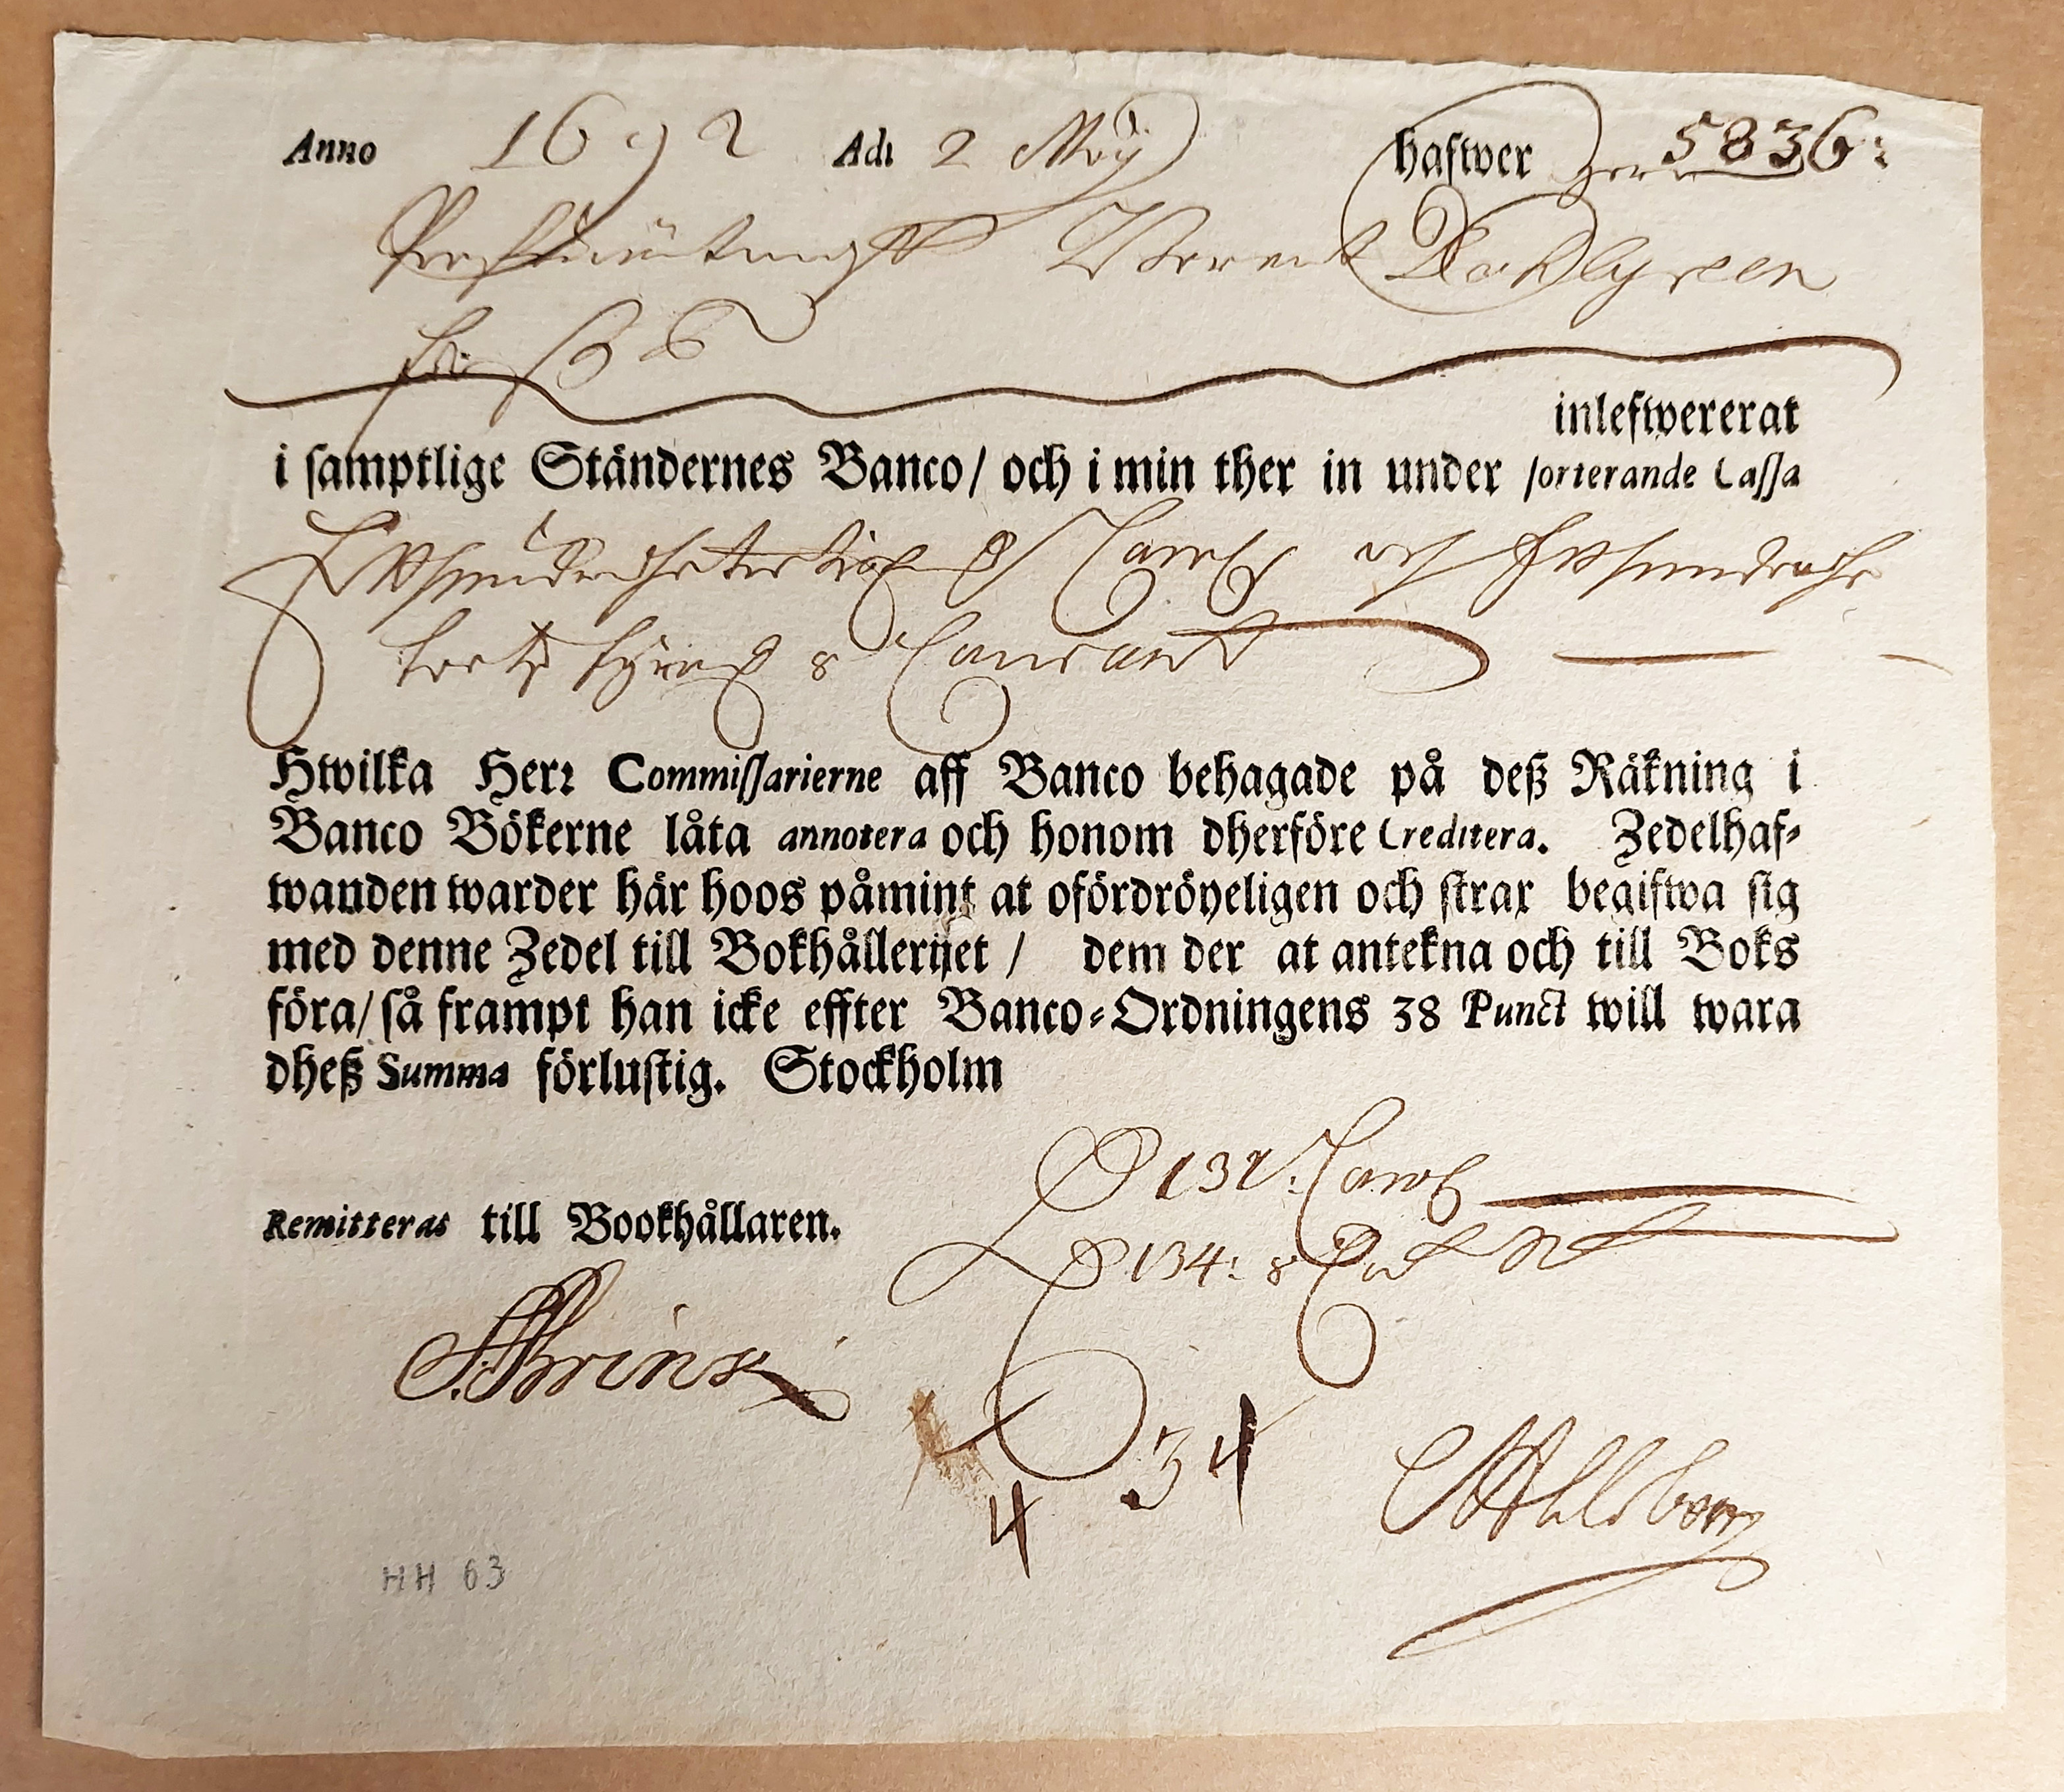 Anno 1692 Adi 2 Maÿ hafwer Herr 5836:
Berent Dahlgreen
inlefwererat
i samptlige Ständernes Banco/ och i min ther in under sorterande Cassa
Etthundrade Carol: och Etthundrade
fyra Courant
Hwilka Herr Commissarierne aff Banco behagade på deß Räkning i
Banco Bökerne låta annotera och honom dherföre Creditera. Zedelhaf-
wanden warder här hoos påmint at ofördröyeligen och strax begifwa sig
med denne Zedel till Bokhållerijet / dem der at antekna och till Boks
föra/ så frampt han icke effter Banco-Ordningens 38 Punct will wara
dheß Summa förlustig. Stockholm
132: Carol
Remitteras till Bookhållaren.
134:
34
4
HH 63